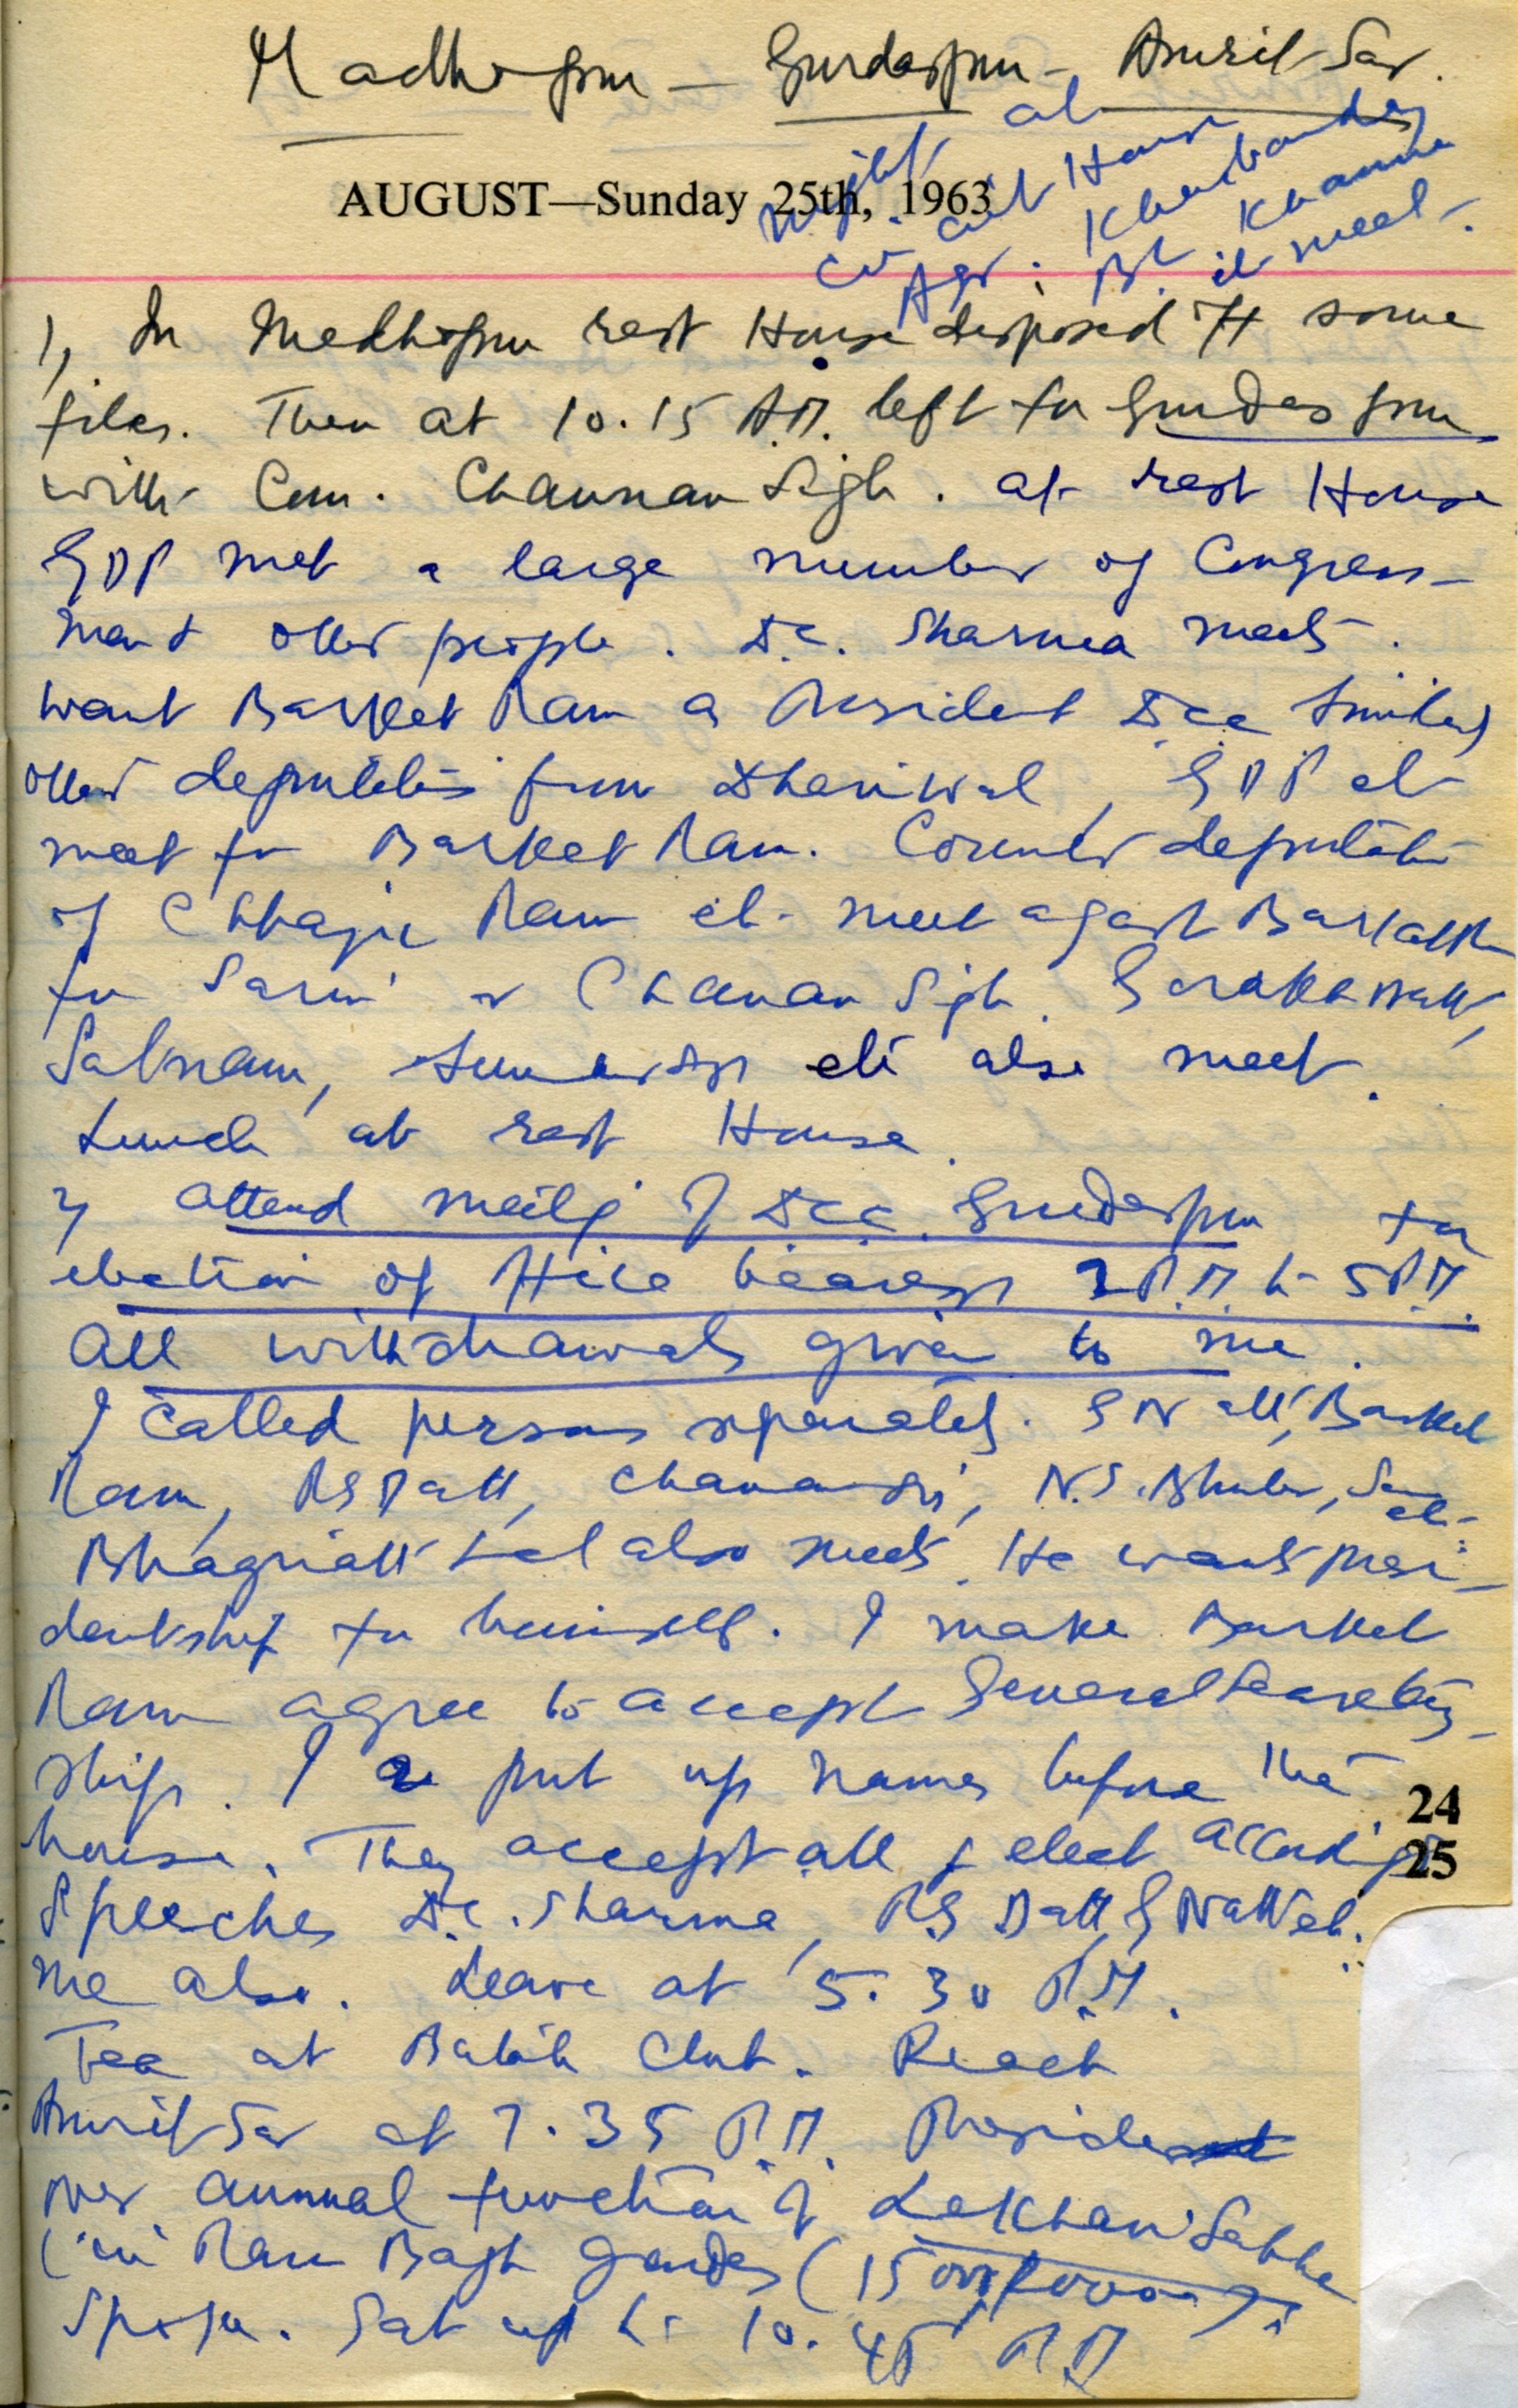 Madhopur — Gurdaspur — Amritsar.
Night at
Circuit House
AUGUST—Sunday 25th, 1963
Khanna
meet.
1, In Madhopur rest House disposed off some
files. Then at 10.15 A.M. left for Gurdaspur
with Com. Channan Singh. at rest House
GDP met a large number of Congress-
men & other people. D.C. Sharma meets.
want Barket Ram as President DCC Similarly
other deputations from Dhariwal, GDP etc
meet for Barket Ram. Counter deputation
of Chhajju Ram etc. meet against
for Sarin & Chanan Singh. Gorakh Nath,
Satnam, etc also meet.
Lunch at rest House.
2, attend meeting of DCC Gurdaspur for
election of office bearers 2 P.M. to 5 P.M.
All withdrawals given to me.
I called persons separately. G Nath, Barket
Ram, RS Datt, Chanan Singh, N.S.
also meets. He wants presi-
dentship for himself. I make Barket
Ram agree to accept General Secretary-
ship. I put up names before the
house. They accept all & elect accordingly
24
25
Speeches D.C. Sharma, RS Datt, G Nath etc.
me also. Leave at 5.30 P.M.
Tea at Batala Club. Reach
Amritsar at 7.35 P.M. Preside
over annual function of Lekhari Sabha
(in Ram Bagh Garden
Spoke. Sat up to 10.45 P.M